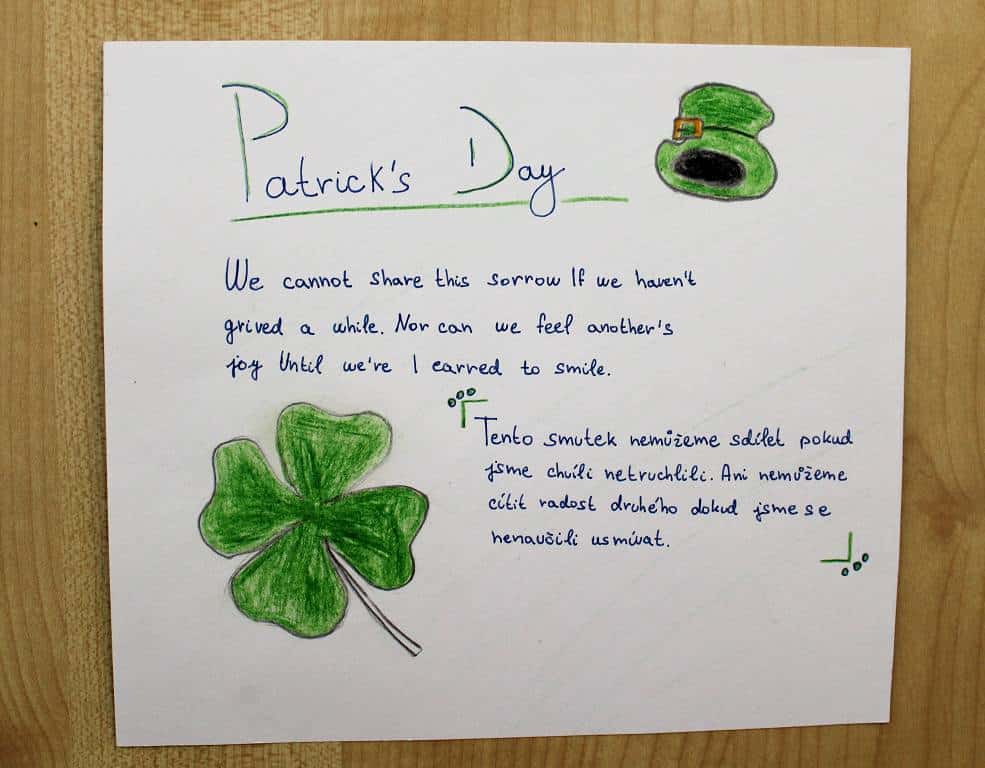 Patrick's Day
We cannot share this sorrow If we haven't
grived a while. Nor can we feel another's
joy Until we're l earred to smile.
Tento smutek nemůžeme sdílet pokud
jsme chvíli netruchlili. Ani nemůžeme
cítit radost druhého dokud jsme se
nenaučili usmívat.